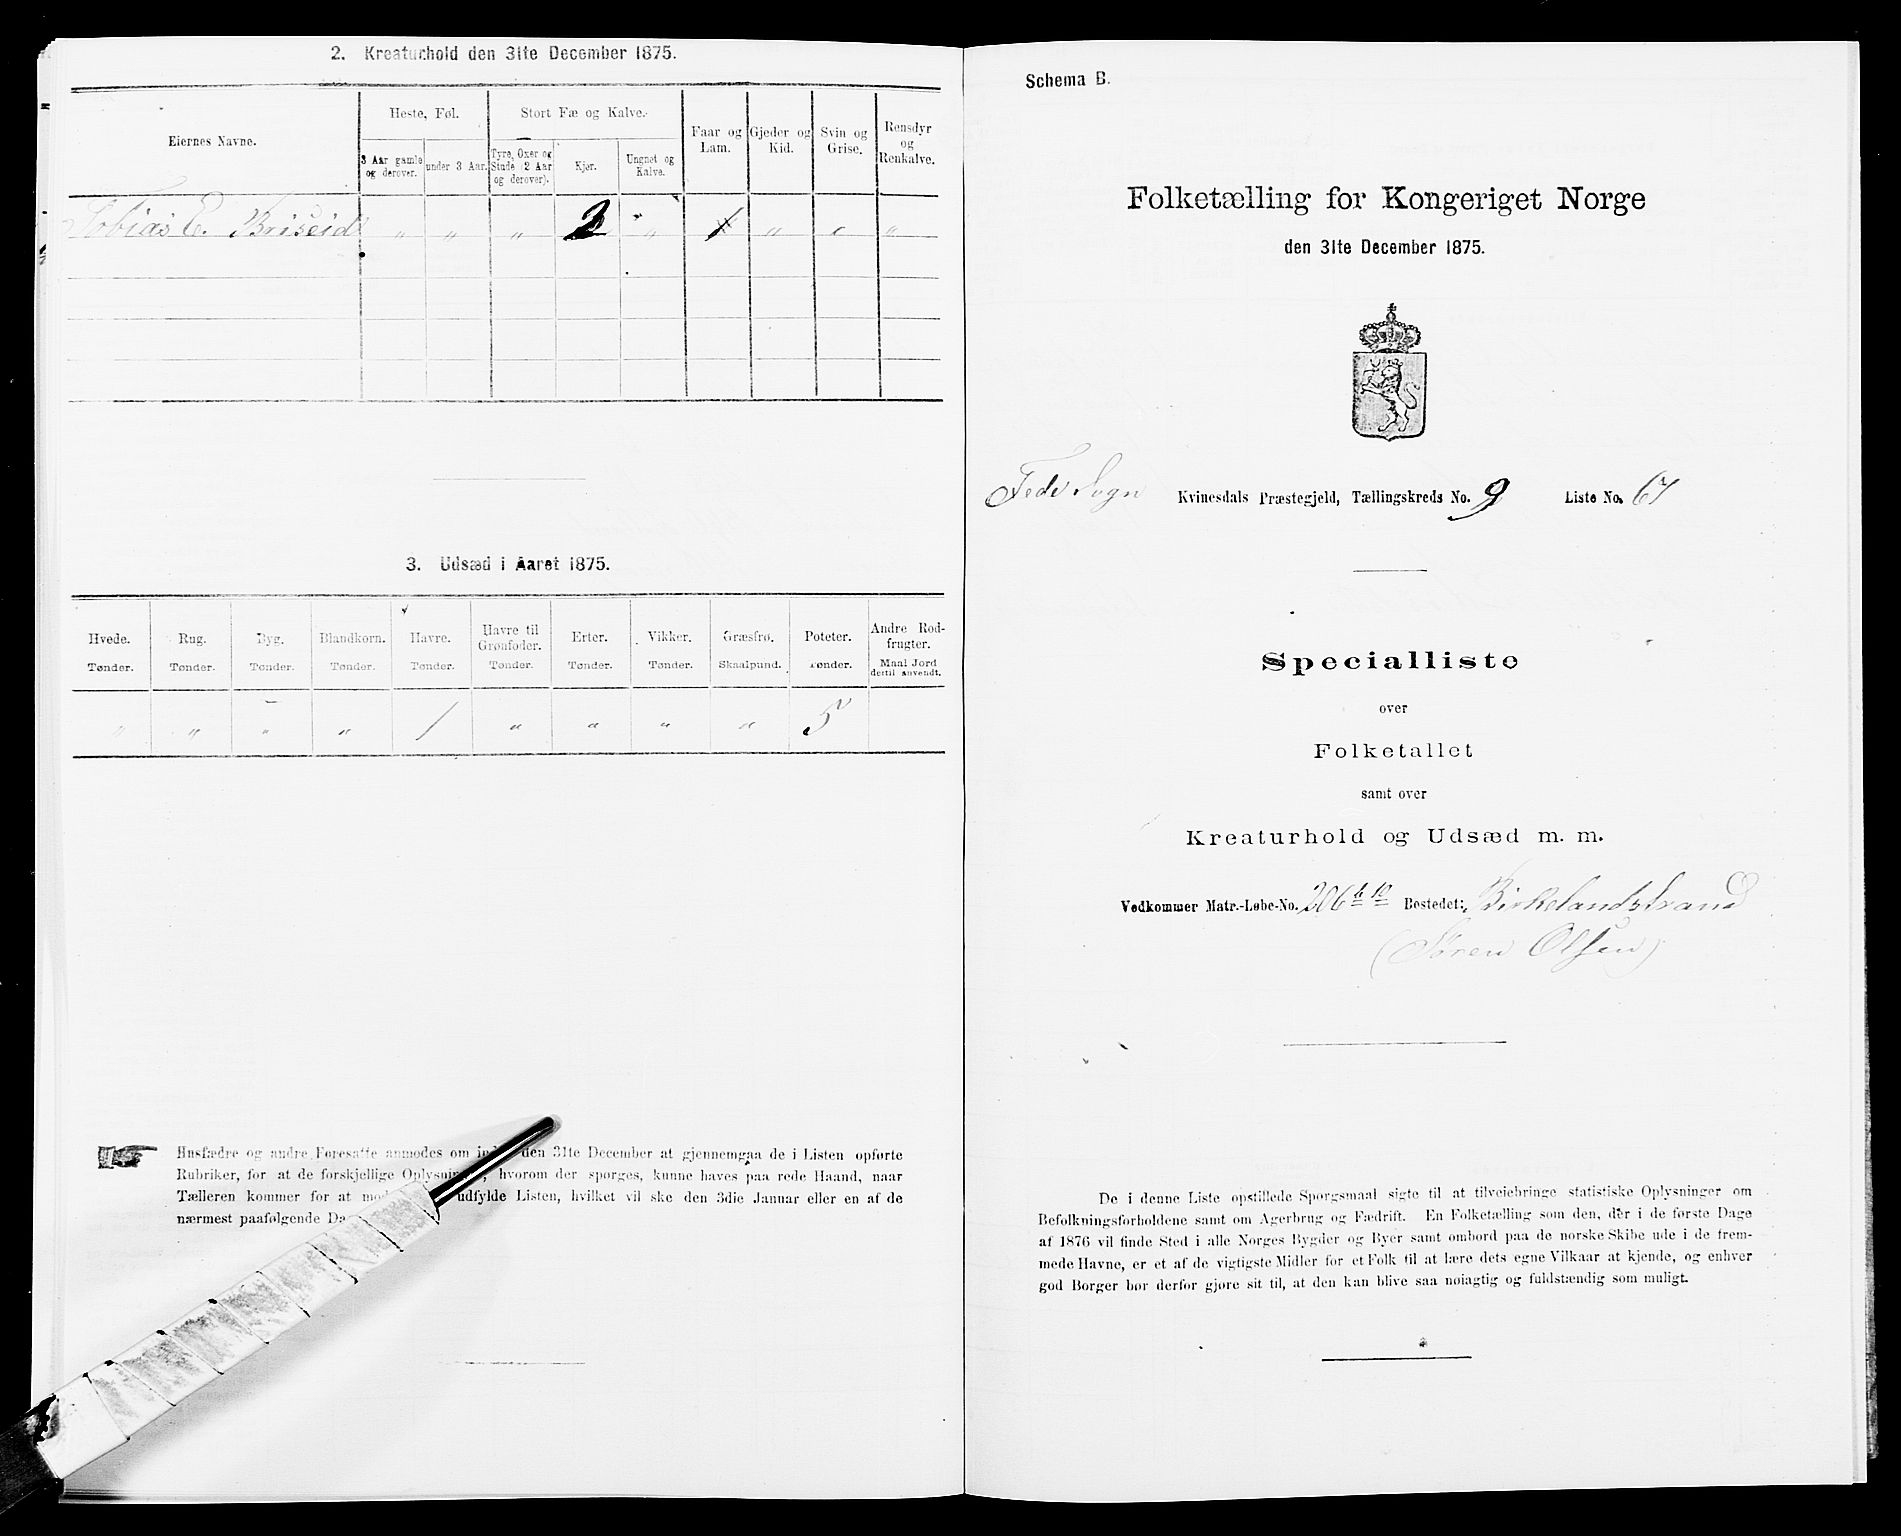 2. Kreaturhold den 31te December 1875.
Eiernes Navne.
Heste, Føl.
Stort Fæ og Kalve.
Faar og Lam.
Gjeder og Kid.
Svin og Grise.
Rensdyr og Renkalve.
3 Aar gamle og derover.
under 3 Aar.
Tyre, Oxer og Stude (2 Aar og derover).
Kjør.
Ungnet og Kalve.
Tobias E. Briseid " " " 2 " "  " "
3. Udsæd i Aaret 1875.
Hvede. Rug. Byg. Blandkorn. Havre. Havre til Grønfoder. Erter. Vikker. Græsfrø. Poteter. Andre Rodfrugter.
Tønder. Tønder. Tønder. Tønder. Tønder. Tønder. Tønder. Tønder. Skaalpund. Tønder. Maal Jord dertil anvendt.
" " " " 1 " " " " 5
Husfædre og andre Foresatte anmodes om den 31te December at gjennemgaa de i Listen opførte
Rubriker, for at de forskjellige hvorom der spørges, kunne haves paa rede Haand, naar
Tælleren kommer for at udfylde Listen, hvilket vil ske den 3die Januar eller en af de
nærmest paafølgende
Schema B.
Folketælling for Kongeriget Norge
den 31te December 1875.
Fede Sogn Kvinesdals Præstegjeld, Tællingskreds No. 9 Liste No. 67
Specialliste
over
Folketallet
samt over
Kreaturhold og Udsæd m. m.
Vedkommer Matr.-Løbe-No. 206 Bostedet: Birkelandstrand
(Søren Olsen)
De i denne Liste opstillede Spørgsmaal sigte til at tilveiebringe statistiske Oplysninger om
Befolkningsforholdene samt om Agerbrug og Fædrift. En Folketælling som den, der i de første Dage
af 1876 vil finde Sted i alle Norges Bygder og Byer samt ombord paa de norske Skibe ude i de frem-
mede Havne, er et af de vigtigste Midler for et Folk til at lære dets egne Vilkaar at kjende, og enhver
god Borger bør derfor gjøre sit til, at den kan blive saa nøiagtig og fuldstændig som muligt.